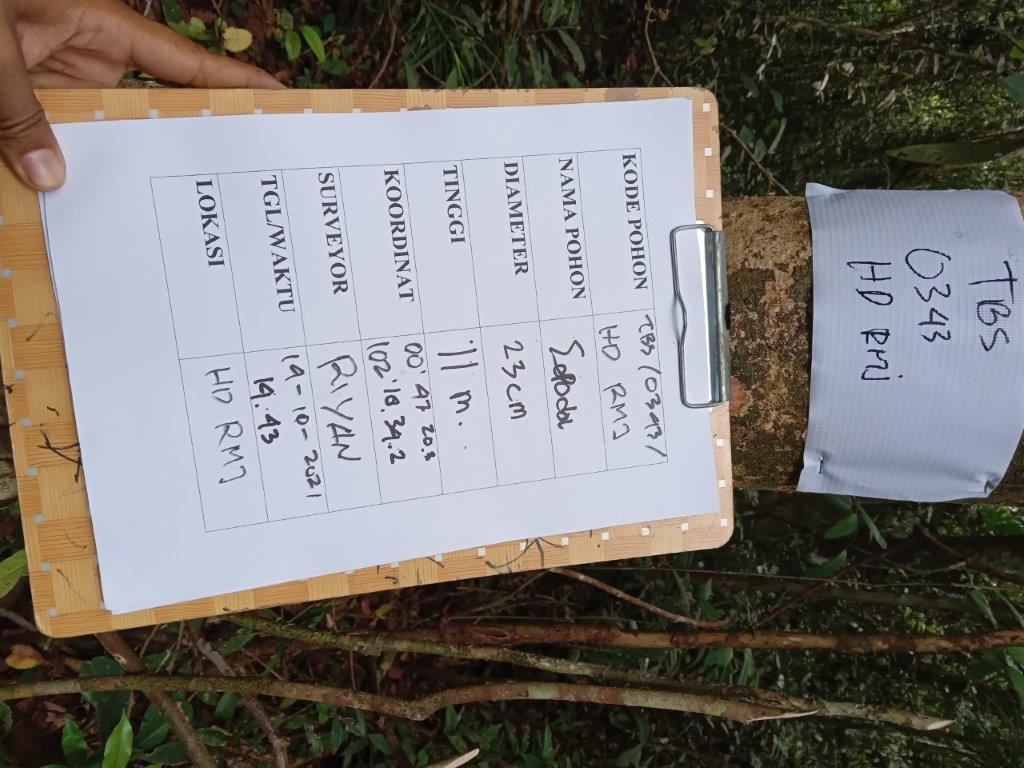 TBS
0343
HD RMJ
KODE POHON TBS/0343/
HD RMJ
NAMA POHON
DIAMETER 23 cm
TINGGI 11 m.
KOORDINAT 00' 47 20.3
102' 18. 34.2
SURVEYOR RIYAN
TGL/WAKTU 14-10-2021
14.43
LOKASI HD RMJ